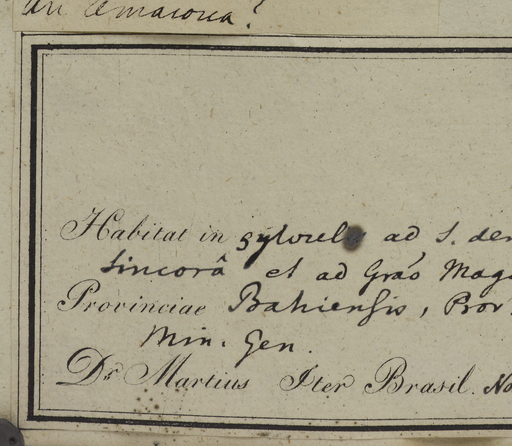 an Cemarorea?
Habitat in sylvul ad S. der
Sincorâ et ad Grâo Mag
Provinciae Bahiensis, Prov.
Min. Gen.
Dr Martius Iter Brasil. No